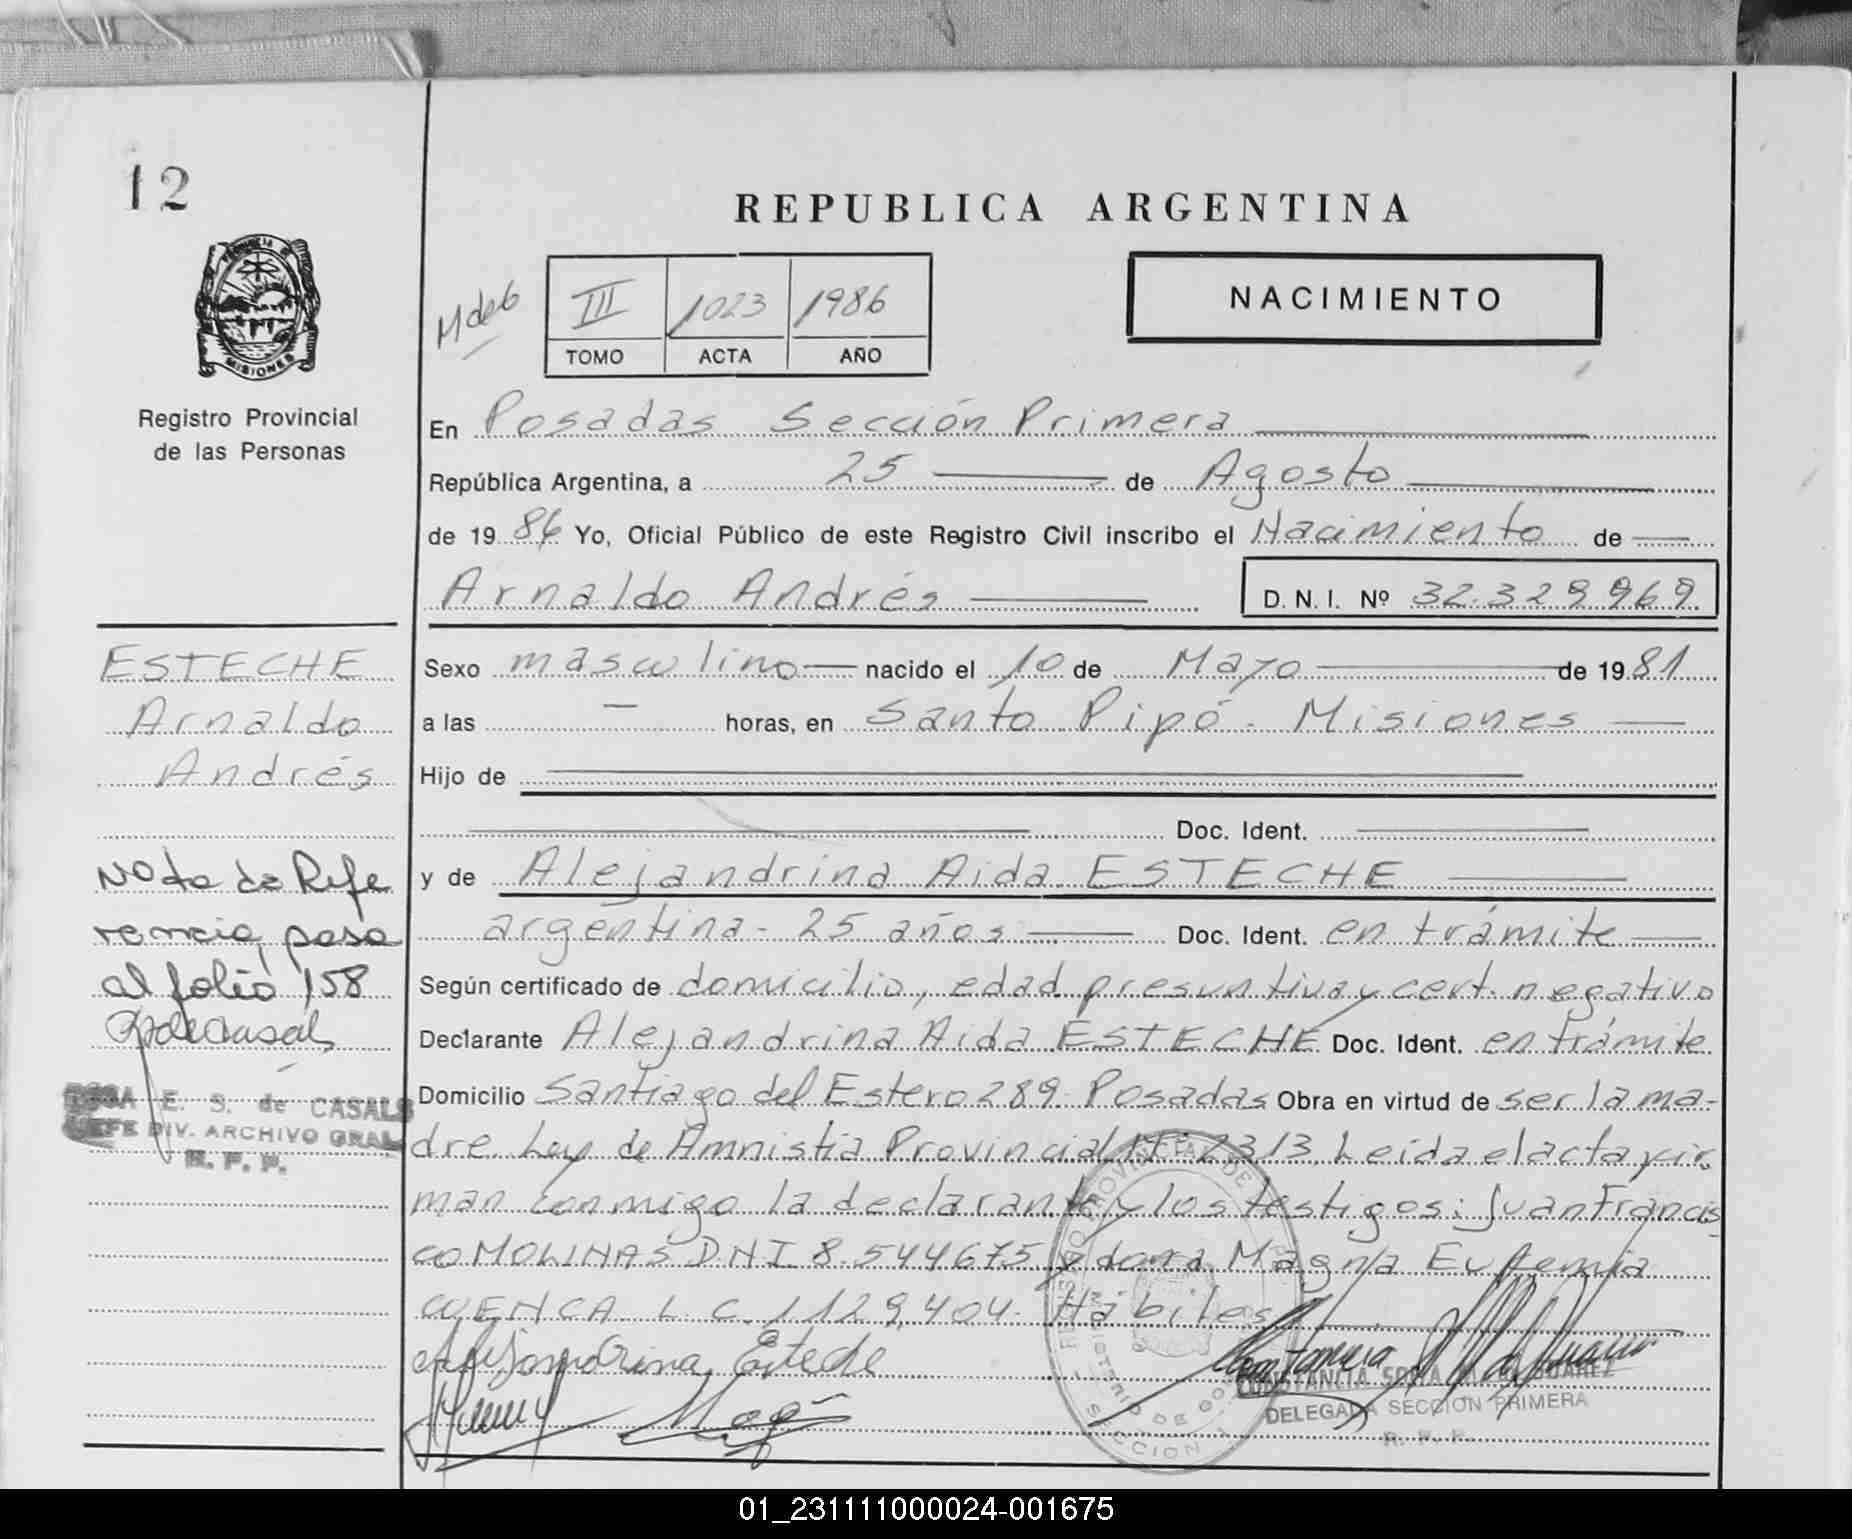 12
REPUBLICA ARGENTINA
Registro Provincial
de las Personas
III 1023 1986
TOMO ACTA AÑO
NACIMIENTO
En Posadas Sección Primera
República Argentina, a 25 de Agosto
de 1986 Yo, Oficial Público de este Registro Civil inscribo el Nacimiento de
Arnaldo Andrés D.N.I. Nº 32.329.969
ESTECHE
Arnaldo
Andrés
Sexo masculino nacido el 10 de Mayo de 1981
a las — horas, en Santo Pipó - Misiones
Hijo de
Doc. Ident.
y de Alejandrina Aida ESTECHE
argentina - 25 años Doc. Ident. en trámite
Según certificado de domicilio, edad presuntiva y cert. negativo
Declarante Alejandrina Aida ESTECHE Doc. Ident. en trámite
Domicilio Santiago del Estero 289 - Posadas Obra en virtud de ser la ma-
dre Ley de Amnistia Provincial Nº 2313. Leída el acta y fir-
man conmigo la declarante y los testigos: Juan Francis
co MOLINAS D.N.I. 8.544675 y dona Magna Eufemia
CUENCA L.C. 1129,404. Hábiles
Nota de Refe
rencia, pasa
al folio 158
E. S. de CASALS
JEFE DIV. ARCHIVO GRAL
R. P. P.
Alejandrina Esteche
CONSTANCIA SUAREZ
DELEGADA SECCION PRIMERA
R. P. P.
01_231111000024-001675